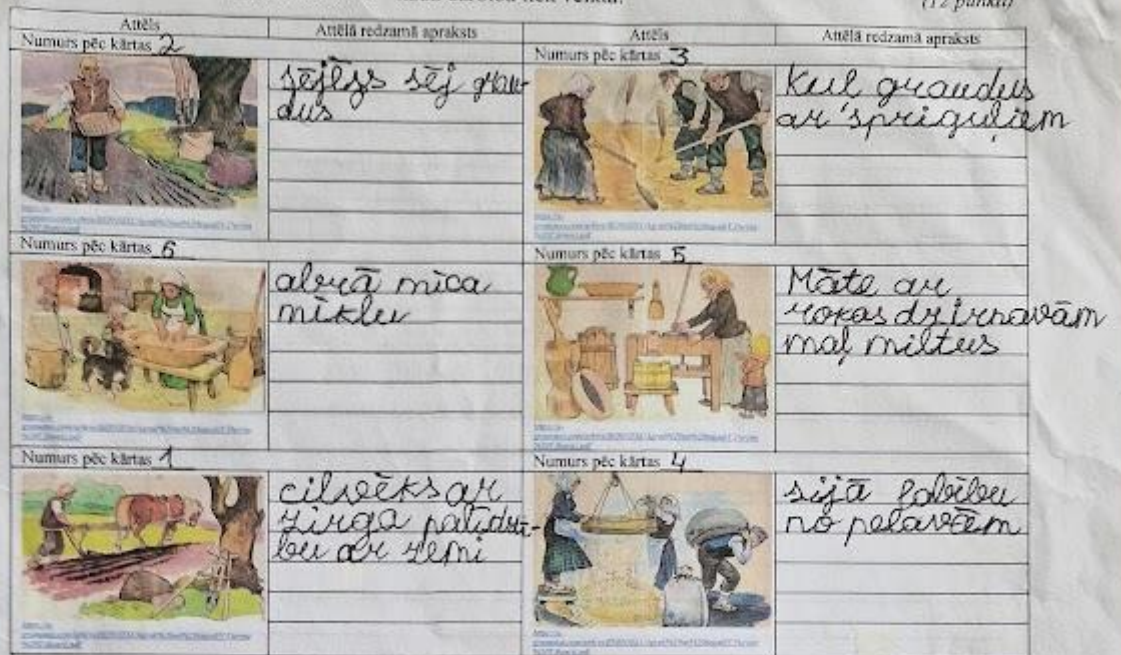 (12 punkti)
Attēls Attēlā redzamā apraksts Attēls Attēlā redzamā apraksts
Numurs pēc kārtas 2
sējējs sēj grau-
dus
Numurs pēc kārtas 3
Kul graudus
ar spriguļiem
Numurs pēc kārtas 6
abrā mīca
mīklu
Numurs pēc kārtas 5
Māte ar
rokas dzirnavām
maļ miltus
Numurs pēc kārtas 1
cilvēks ar
zirga palīdzī-
bu ar zemi
Numurs pēc kārtas 4
sijā labību
no pelavām